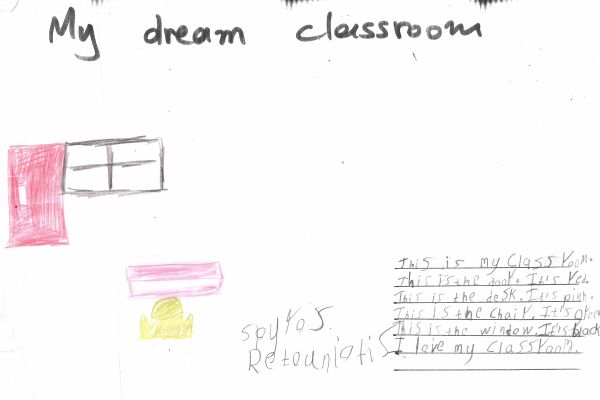 My dream classroom
This is my classroom.
This is the door. It's red.
This is the desk. It's pink.
This is the chair. It's
This is the window. It's black
I love my classroom.
spyros